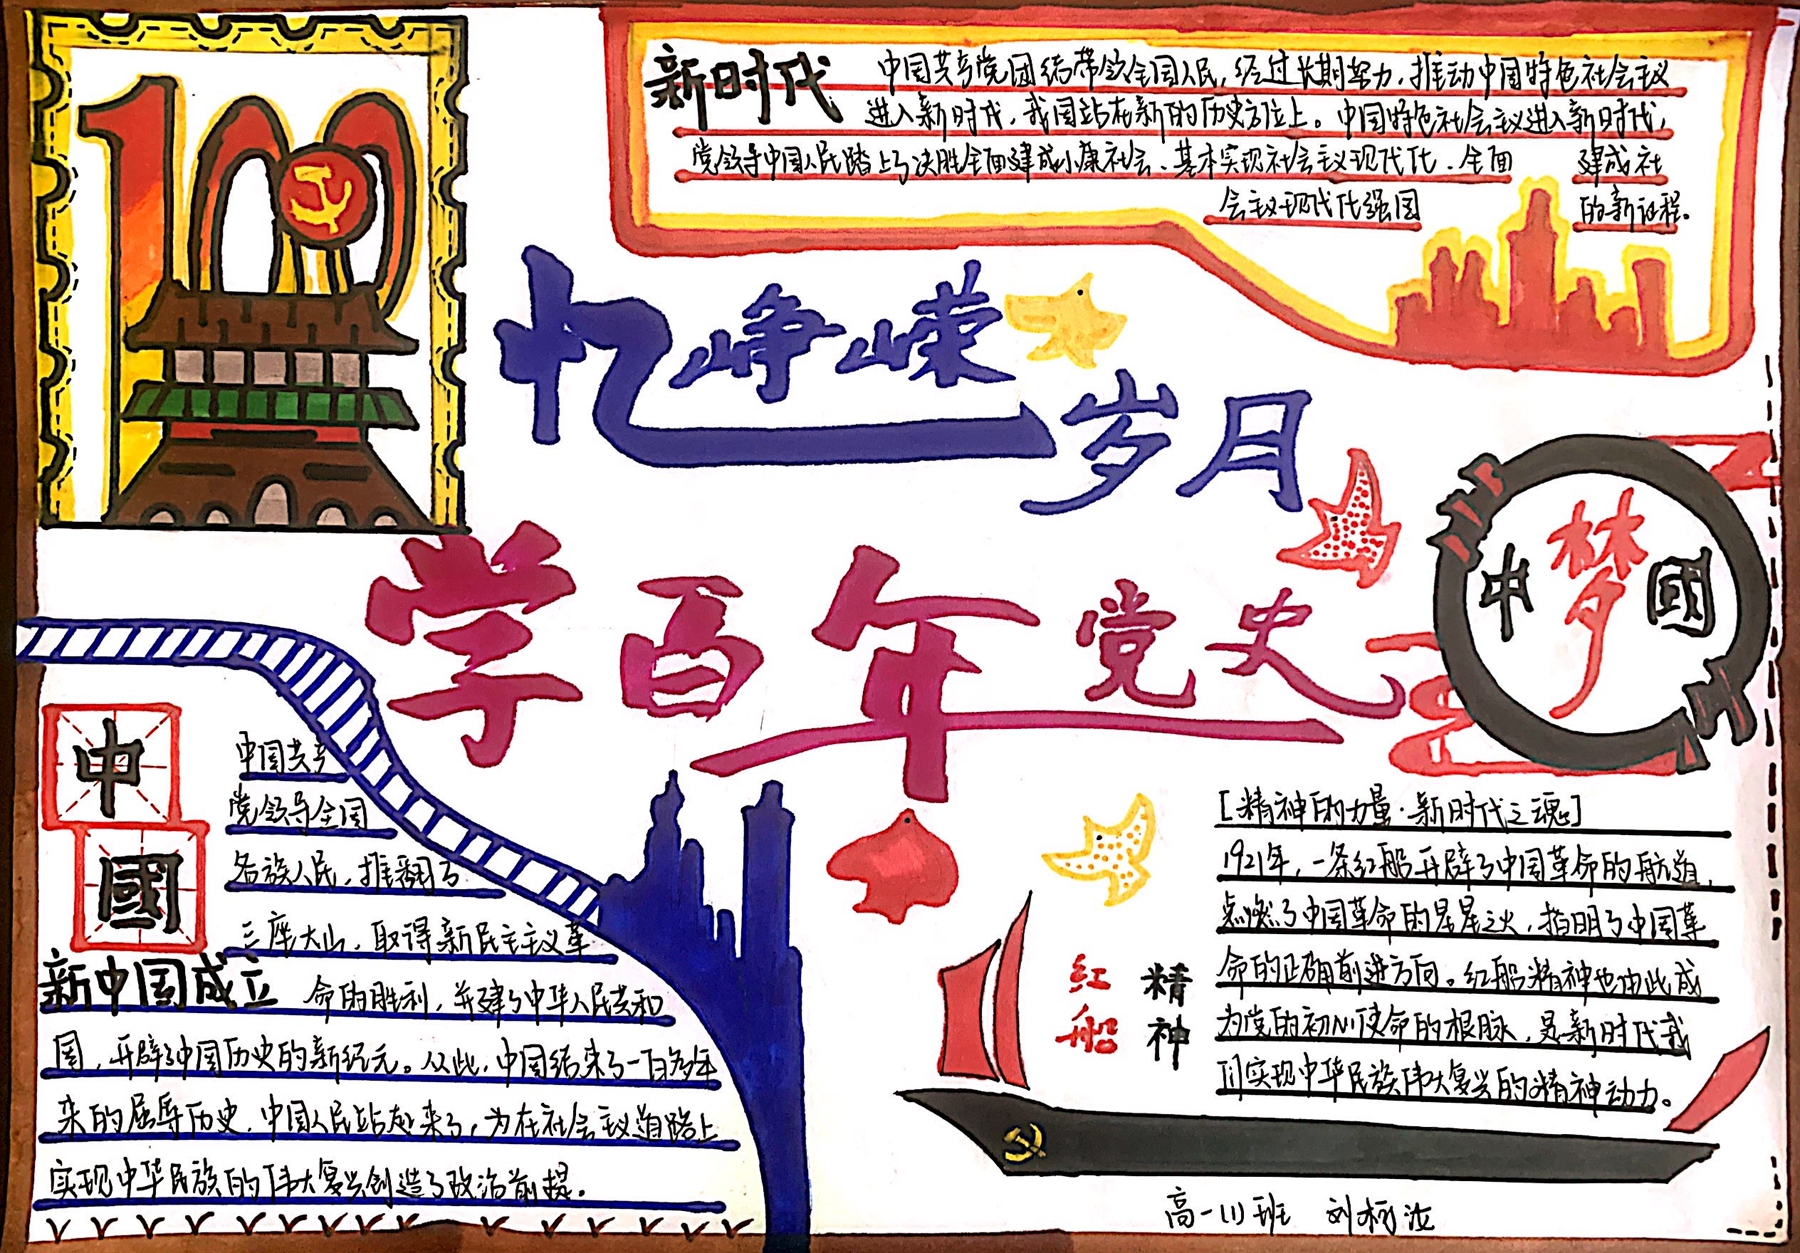 100
新时代
中国共产党团结带领全国人民,经过长期努力,推动中国特色社会主义
进入新时代,我国站在新的历史方位上。中国特色社会主义进入新时代,
党领导中国人民踏上了决胜全面建成小康社会、基本实现社会主义现代化、全面 建成社
会主义现代化强国 的新征程。
忆峥嵘
岁月
学百年党史
中梦國
中
國
中国共产
党领导全国
各族人民,推翻了
三座大山,取得新民主主义革
新中国成立 命的胜利,并建了中华人民共和
国,开辟了中国历史的新纪元。从此,中国结束了一百多年
来的屈辱历史,中国人民站起来了,为在社会主义道路上
实现中华民族的伟大复兴创造了政治前提。
[精神的力量·新时代之魂]
1921年,一条红船开辟了中国革命的航道,
点燃了中国革命的星星之火,指明了中国革
命的正确前进方向。红船精神也由此成
为党的初心使命的根脉,是新时代我
们实现中华民族伟大复兴的精神动力。
红船
精神
高一(1)班 刘柯